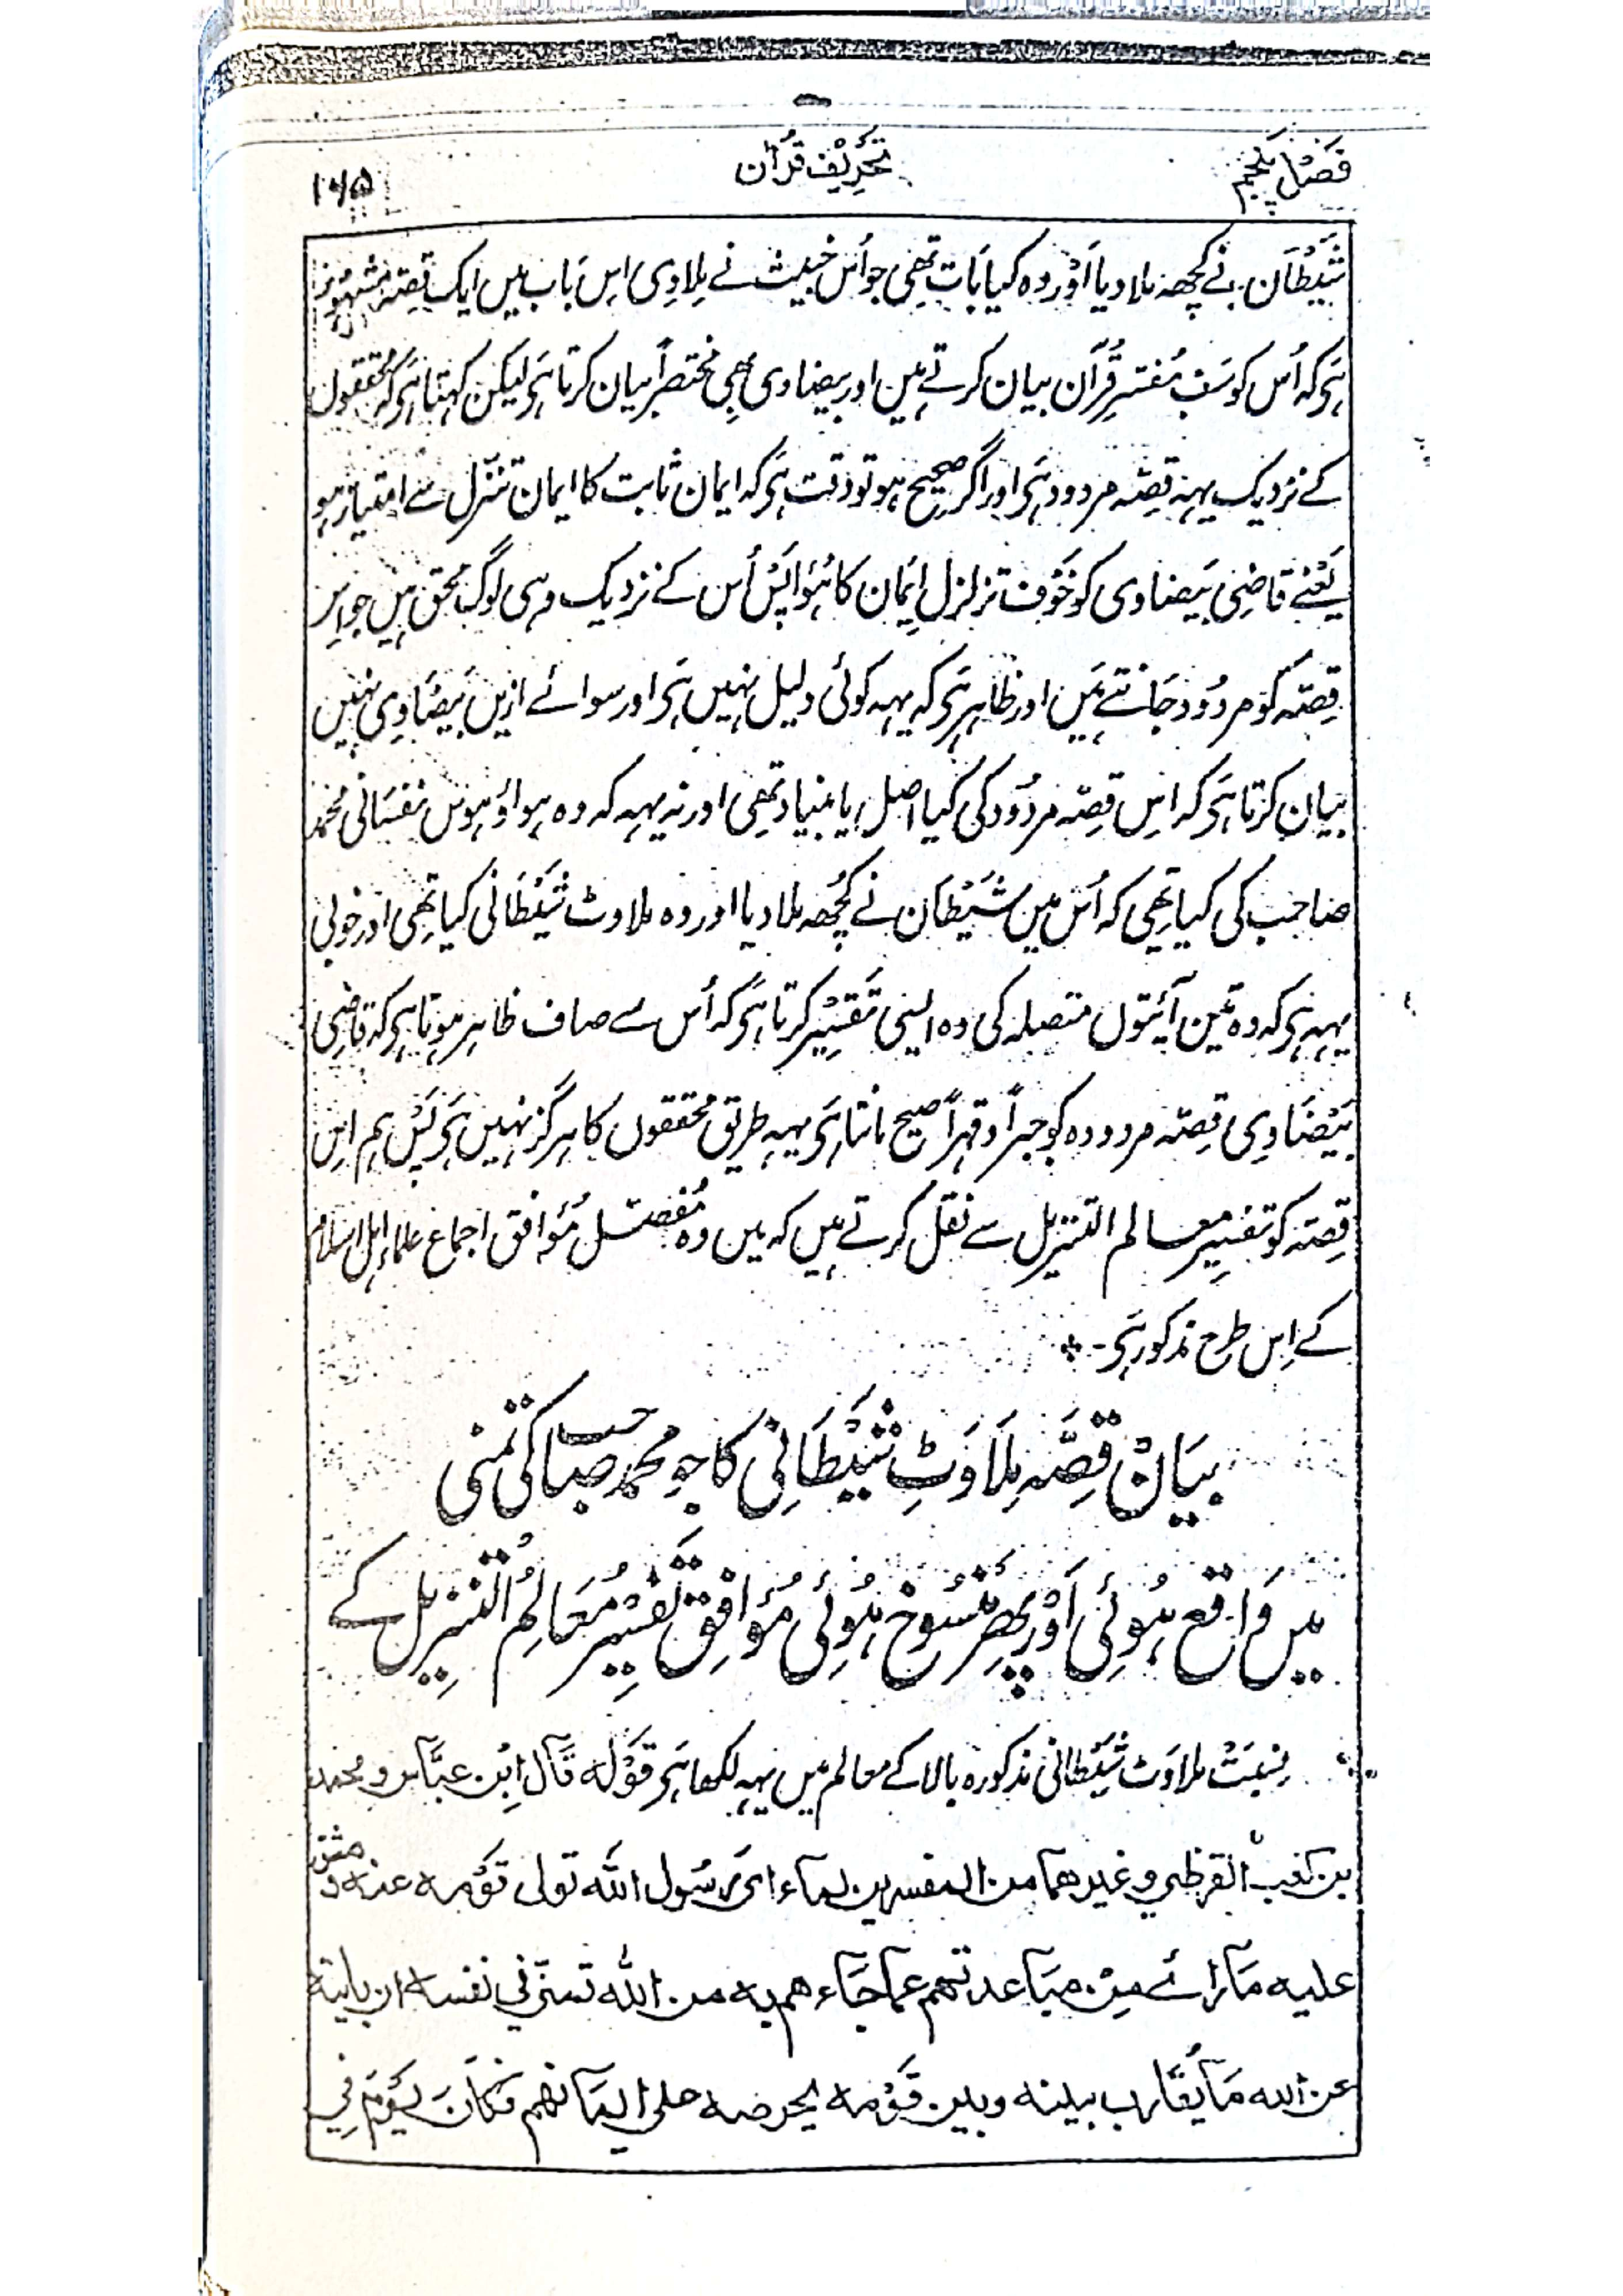 فصل پنجم
تحریف قرآن
۱۶۵
شَیْطَان نے کچھہ ملا دیا اَوْر وہ کیا بَات تھی جو اُس خبیث نے مِلادی اِس بَاب میں ایک قِصّہ مَشہُور
ہَی کہ اُس کو سَب مُفسّرِ قُرآن بیان کرتے ہَیں اور بیضاوی بھِی مختصراً بیان کرتا ہَی لیکن کہتا ہَی کہ محُققوں
کے نزدیک یہہ قِصّہ مردود ہَی اور اگر صحِیح ہو تو دقت ہَی کہ ایمان ثابت کا ایمان تنزّل سے امتیاز ہو
یَعْنے قاضِی بَیضاوی کو خَوْف تزلزل اِیمَان کا ہُوٴا پَسْ اُس کے نزدیک وہی لوگ محق ہیں جو اِس
قِصّہ کو مردُود جَانتے ہَیں اور ظاہر ہَی کہ یہہ کوئی دلیل نہیں ہَی اور سوائے ازیں بَیضَاوِی نہیں
بیان کرتا ہَی کہ اِس قِصّہ مردُود کی کیا اصل یا بنیاد تھی اور نہ یہہ کہ وہ ہوا وٴ ہوس نفسَانی محُمّد
صاحب کی کیا تھِی کہ اُس میں شَیْطَان نے کُچھہ ملا دیا اور وہ ملاوٹ شَیْطَانی کیا تھِی اور خوبی
یہہ ہَی کہ وہ تین آیتوں متصِلہ کی وہ ایسی تَفسِیْر کرتا ہَی کہ اُس سے صاف ظاہر ہوتا ہَی کہ قاضِی
بَیْضَاوِی قِصّہ مردودہ کو جبراً و قہراً صحیح مانتا ہَی یہہ طریق محُققوں کا ہرگز نہیں ہَی پَسْ ہم اِس
قِصّہ کو تَفسِیر معالم التنزیل سے نقل کرتے ہیں کہ میں وہ مُفصّل مُوٴافق اجماع علماء اہل اسلام
کے اِس طرح مذکور ہَی -
بیَانْ قِصَّہ مِلَاوَٹِ شَیْطَانِی کا جو محمد صاحب کی تمنی
میں وَاقع ہُوئی اَوْر پھِر مَنْسُوخ ہُوئی مُوٴافِق تَفسِیر مَعَالِمُ التنزیل کے
نِسْبَتْ ملاوَٹ شَیْطانی مذکورہ بالا کے معالم میں یہہ لکھا ہَی قَوْلہ قَال اِبْن عبَّاس و محمد
بن کعب القرظی و غیرهما من المفسرین لما رای رَسُول اللّٰه تولی قَوْمه عنه و شق
علیه مَا رأے مِنْ مبَاعدتهم عما جَاء هم به من اللّٰه تمنّی فی نفسه ان یاتیه
عن اللّٰه مَا یُقَارب بینه و بین قَوْمه لحرصه علی ایمَانهم فکَانَ یَوْمَ فِی